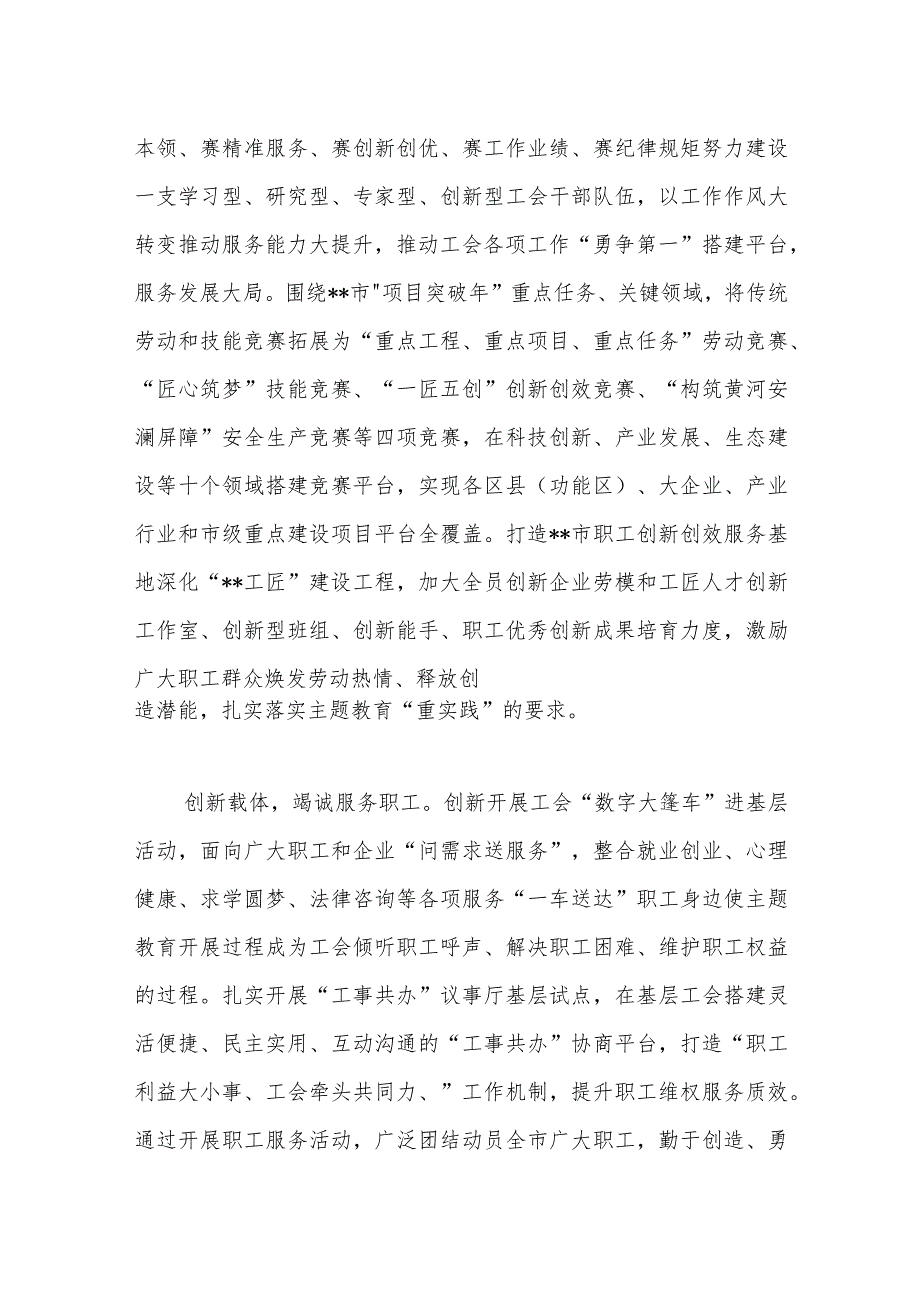 本领、赛精准服务、赛创新创优、赛工作业绩、赛纪律规矩努力建设
一支学习型、研究型、专家型、创新型工会干部队伍，以工作作风大
转变推动服务能力大提升，推动工会各项工作“勇争第一”搭建平台，
服务发展大局。围绕**市"项目突破年”重点任务、关键领域，将传统
劳动和技能竞赛拓展为“重点工程、重点项目、重点任务”劳动竞赛、
“匠心筑梦”技能竞赛、“一匠五创”创新创效竞赛、“构筑黄河安
澜屏障”安全生产竞赛等四项竞赛，在科技创新、产业发展、生态建
设等十个领域搭建竞赛平台，实现各区县（功能区）、大企业、产业
行业和市级重点建设项目平台全覆盖。打造**市职工创新创效服务基
地深化“**工匠”建设工程，加大全员创新企业劳模和工匠人才创新
工作室、创新型班组、创新能手、职工优秀创新成果培育力度，激励
广大职工群众焕发劳动热情、释放创
造潜能，扎实落实主题教育“重实践”的要求。
创新载体，竭诚服务职工。创新开展工会“数字大篷车”进基层
活动，面向广大职工和企业“问需求送服务”，整合就业创业、心理
健康、求学圆梦、法律咨询等各项服务“一车送达”职工身边使主题
教育开展过程成为工会倾听职工呼声、解决职工困难、维护职工权益
的过程。扎实开展“工事共办”议事厅基层试点，在基层工会搭建灵
活便捷、民主实用、互动沟通的“工事共办”协商平台，打造“职工
利益大小事、工会牵头共同力、”工作机制，提升职工维权服务质效。
通过开展职工服务活动，广泛团结动员全市广大职工，勤于创造、勇